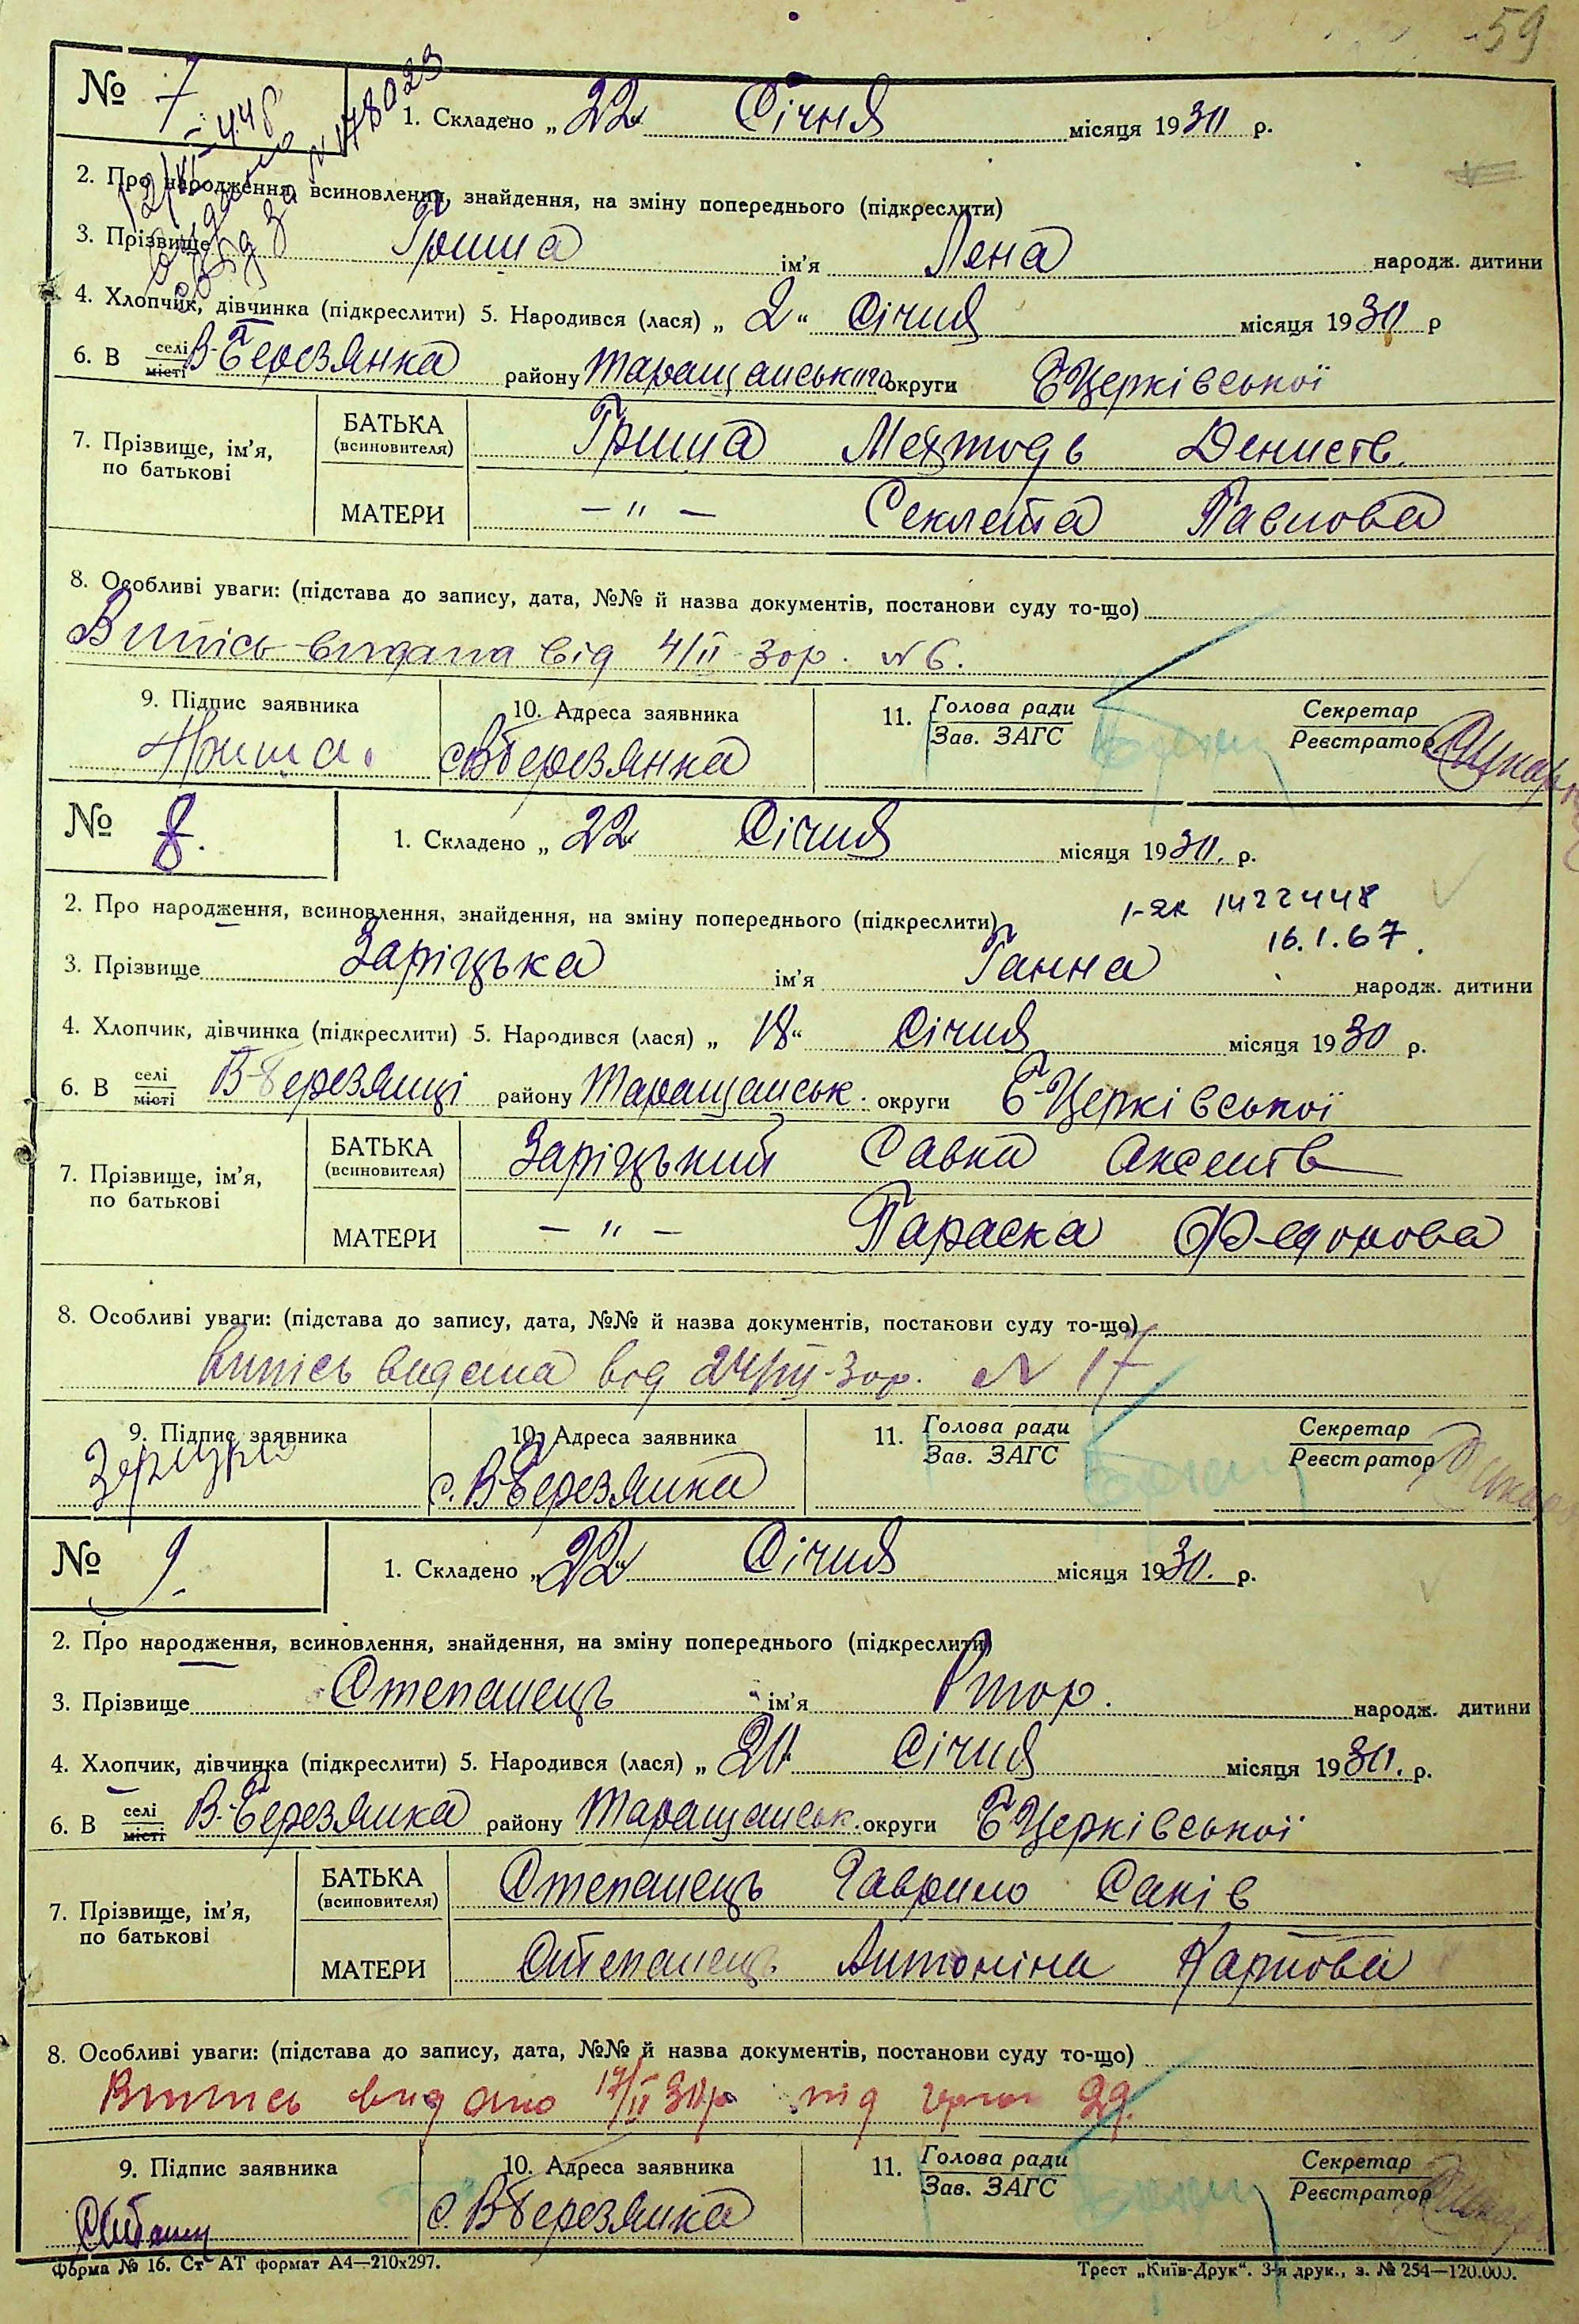 59
№ 7
№ 178023
1. Складено „ 22 " Січня місяця 1930 р.
2. Про народження, всиновлення, знайдення, на зміну попереднього (підкреслити)
3. Прізвище Гриша ім'я Лена народж. дитини
4. Хлопчик, дівчинка (підкреслити) 5. Народився (лася) „ 2 “ Січня місяця 1930 р
6. В селі/місті В-Березянка району Таращанського округи Б Церківської
7. Прізвище, ім'я, по батькові
БАТЬКА (всиновителя) Гриша Методь Денисів.
МАТЕРИ — " — Секлета Павлова
8. Особливі уваги: (підстава до запису, дата, №№ й назва документів, постанови суду то-що)
Випісь видана від 4/II-30р. № 6.
9. Підпис заявника Гриша.
10. Адреса заявника с ВБерезянка
11. Голова ради / Зав. ЗАГС
Секретар / Реєстратор
№ 8.
1. Складено „ 22 Січня місяця 1930. р.
2. Про народження, всиновлення, знайдення, на зміну попереднього (підкреслити)
1-як 1422448
16.1.67.
3. Прізвище Заріцька ім'я Ганна народж. дитини
4. Хлопчик, дівчинка (підкреслити) 5. Народився (лася) „ 18 “ Січня місяця 1930 р.
6. В селі/місті В-Березянці району Таращанськ. округи Б Церківської
7. Прізвище, ім'я, по батькові
БАТЬКА (всиновителя) Заріцький Савка Аксентів
МАТЕРИ — " — Параска Федорова
8. Особливі уваги: (підстава до запису, дата, №№ й назва документів, постанови суду то-що)
Випісь видана від 24/III-30р. № 17
9. Підпис заявника
10. Адреса заявника с. ВБерезянка
11. Голова ради / Зав. ЗАГС
Секретар / Реєстратор
№ 9.
1. Складено „ 22 " Січня місяця 1930. р.
2. Про народження, всиновлення, знайдення, на зміну попереднього (підкреслити)
3. Прізвище Степанець ім'я народж. дитини
4. Хлопчик, дівчинка (підкреслити) 5. Народився (лася) „ 20 Січня місяця 1930. р.
6. В селі/місті В.-Березянка району Таращанськ. округи Б Церківської
7. Прізвище, ім'я, по батькові
БАТЬКА (всиновителя) Степанець Гаврило Саків
МАТЕРИ Степанець Антоніна Карпова
8. Особливі уваги: (підстава до запису, дата, №№ й назва документів, постанови суду то-що)
Випись видано 17/II 30р під 29.
9. Підпис заявника
10. Адреса заявника с. ВБерезянка
11. Голова ради / Зав. ЗАГС
Секретар / Реєстратор
Форма № 16. Ст АТ формат А4—210х297.
Трест „Київ-Друк“. 3-я друк., з. № 254—120.000.